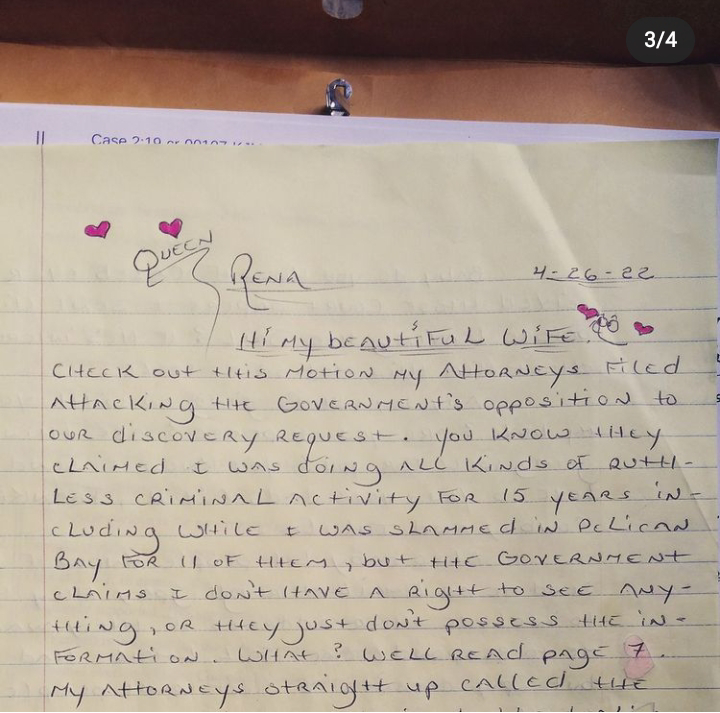 3/4
Case 2:19
QUEEN RENA
4-26-22
Hi My bEAUtiFUL WiFE.
CHECK OUt tHis MOtiON MY AttORNEYS FiLEd
AttACKiNg tHE GOVERNMENt's OppOSitiON tO
OUR discOVERY REQUESt. YOU KNOW tHEY
CLAiMEd I WAS dOiNg ALL KiNdS OF RUtH-
LESS CRiMiNAL ACtiVitY FOR 15 YEARS iN-
CLUdiNg WHiLE I WAS SLAMMEd iN PELiCAN
BAY FOR 11 OF tHEM, bUt tHE GOVERNMENt
CLAiMS I dON't HAVE A RigHt tO SEE ANY-
tHiNg, OR tHEY jUSt dON't pOSSESS tHE iN-
FORMAtiON. WHAt? WELL READ pAgE 7.
MY AttORNEYS StRAigHt Up CALLEd tHE